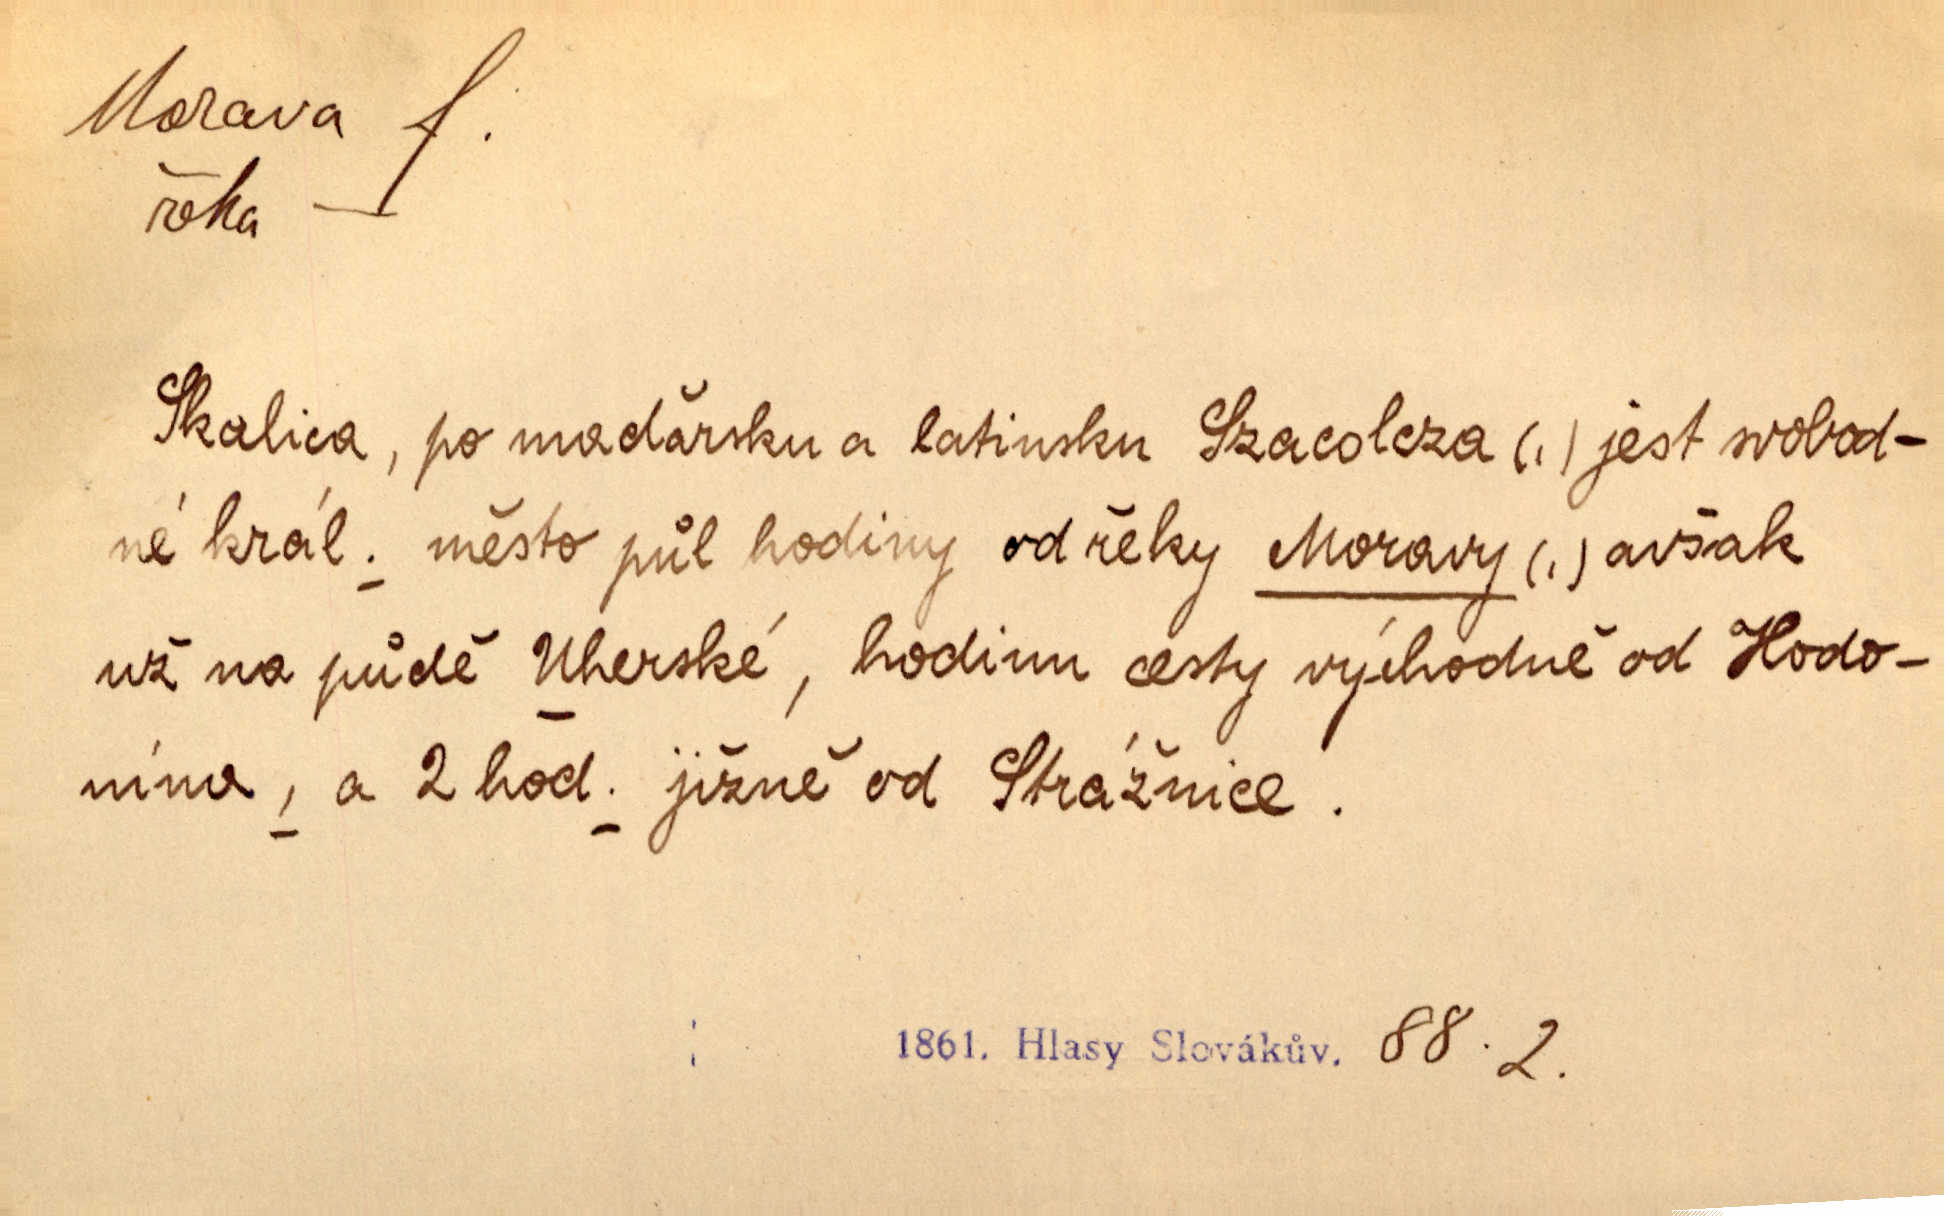 Morava f.
řeka —
Skalica, po maďarsku a latinsku Szacolcza (,) jest svobod-
né král. město půl hodiny od řeky Moravy (,) avšak
už na půdě Uherské, hodinu cesty východně od Hodo-
nína, a 2 hod. jižně od Strážnice.
1861. Hlasy Slovákův. 88. 2.